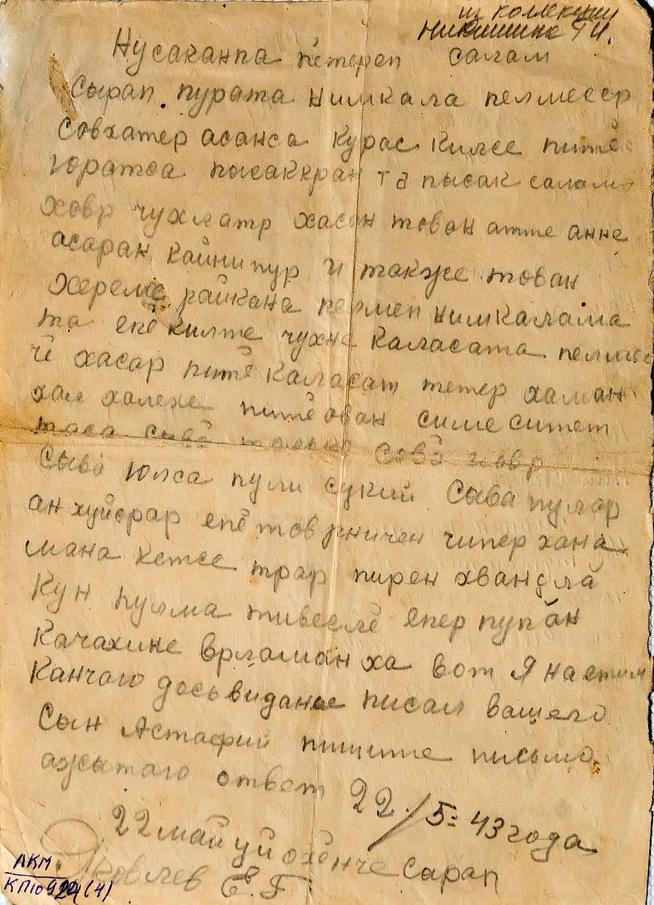 из коллекции
Никишина Г И.
Нусаканпа петереп салам
Сырап пурата нимкала пелмесер
Совхатер асанса курас килсе питё
юратса пысаккран та пысак салам
ховр чухлатр хасан тован атте анне
асаран кайнипур и также тован
хереме райкана пелмен нимкалама
та епё килте чухне каласата пелмес
че хасар питё каласат тетер халхан
хал халехе питё аван симе ситет
таса сывё
Сыва юлса пули сукий Сыва пулар
ан хуйсрар епё тов рничен чипер хана
мана кетсе трар пирен хвандла
кун пулма тивеслё епер пупан
качахине врламан ха вот Я настим
канчаю досьвиданье писал вашего
Сын Астафий пишите письмо
ажытаю ответ 22/5=43 года
22 май уйохёнче сарап
Яковлев Е. Г
АКМ
КП10924(4)